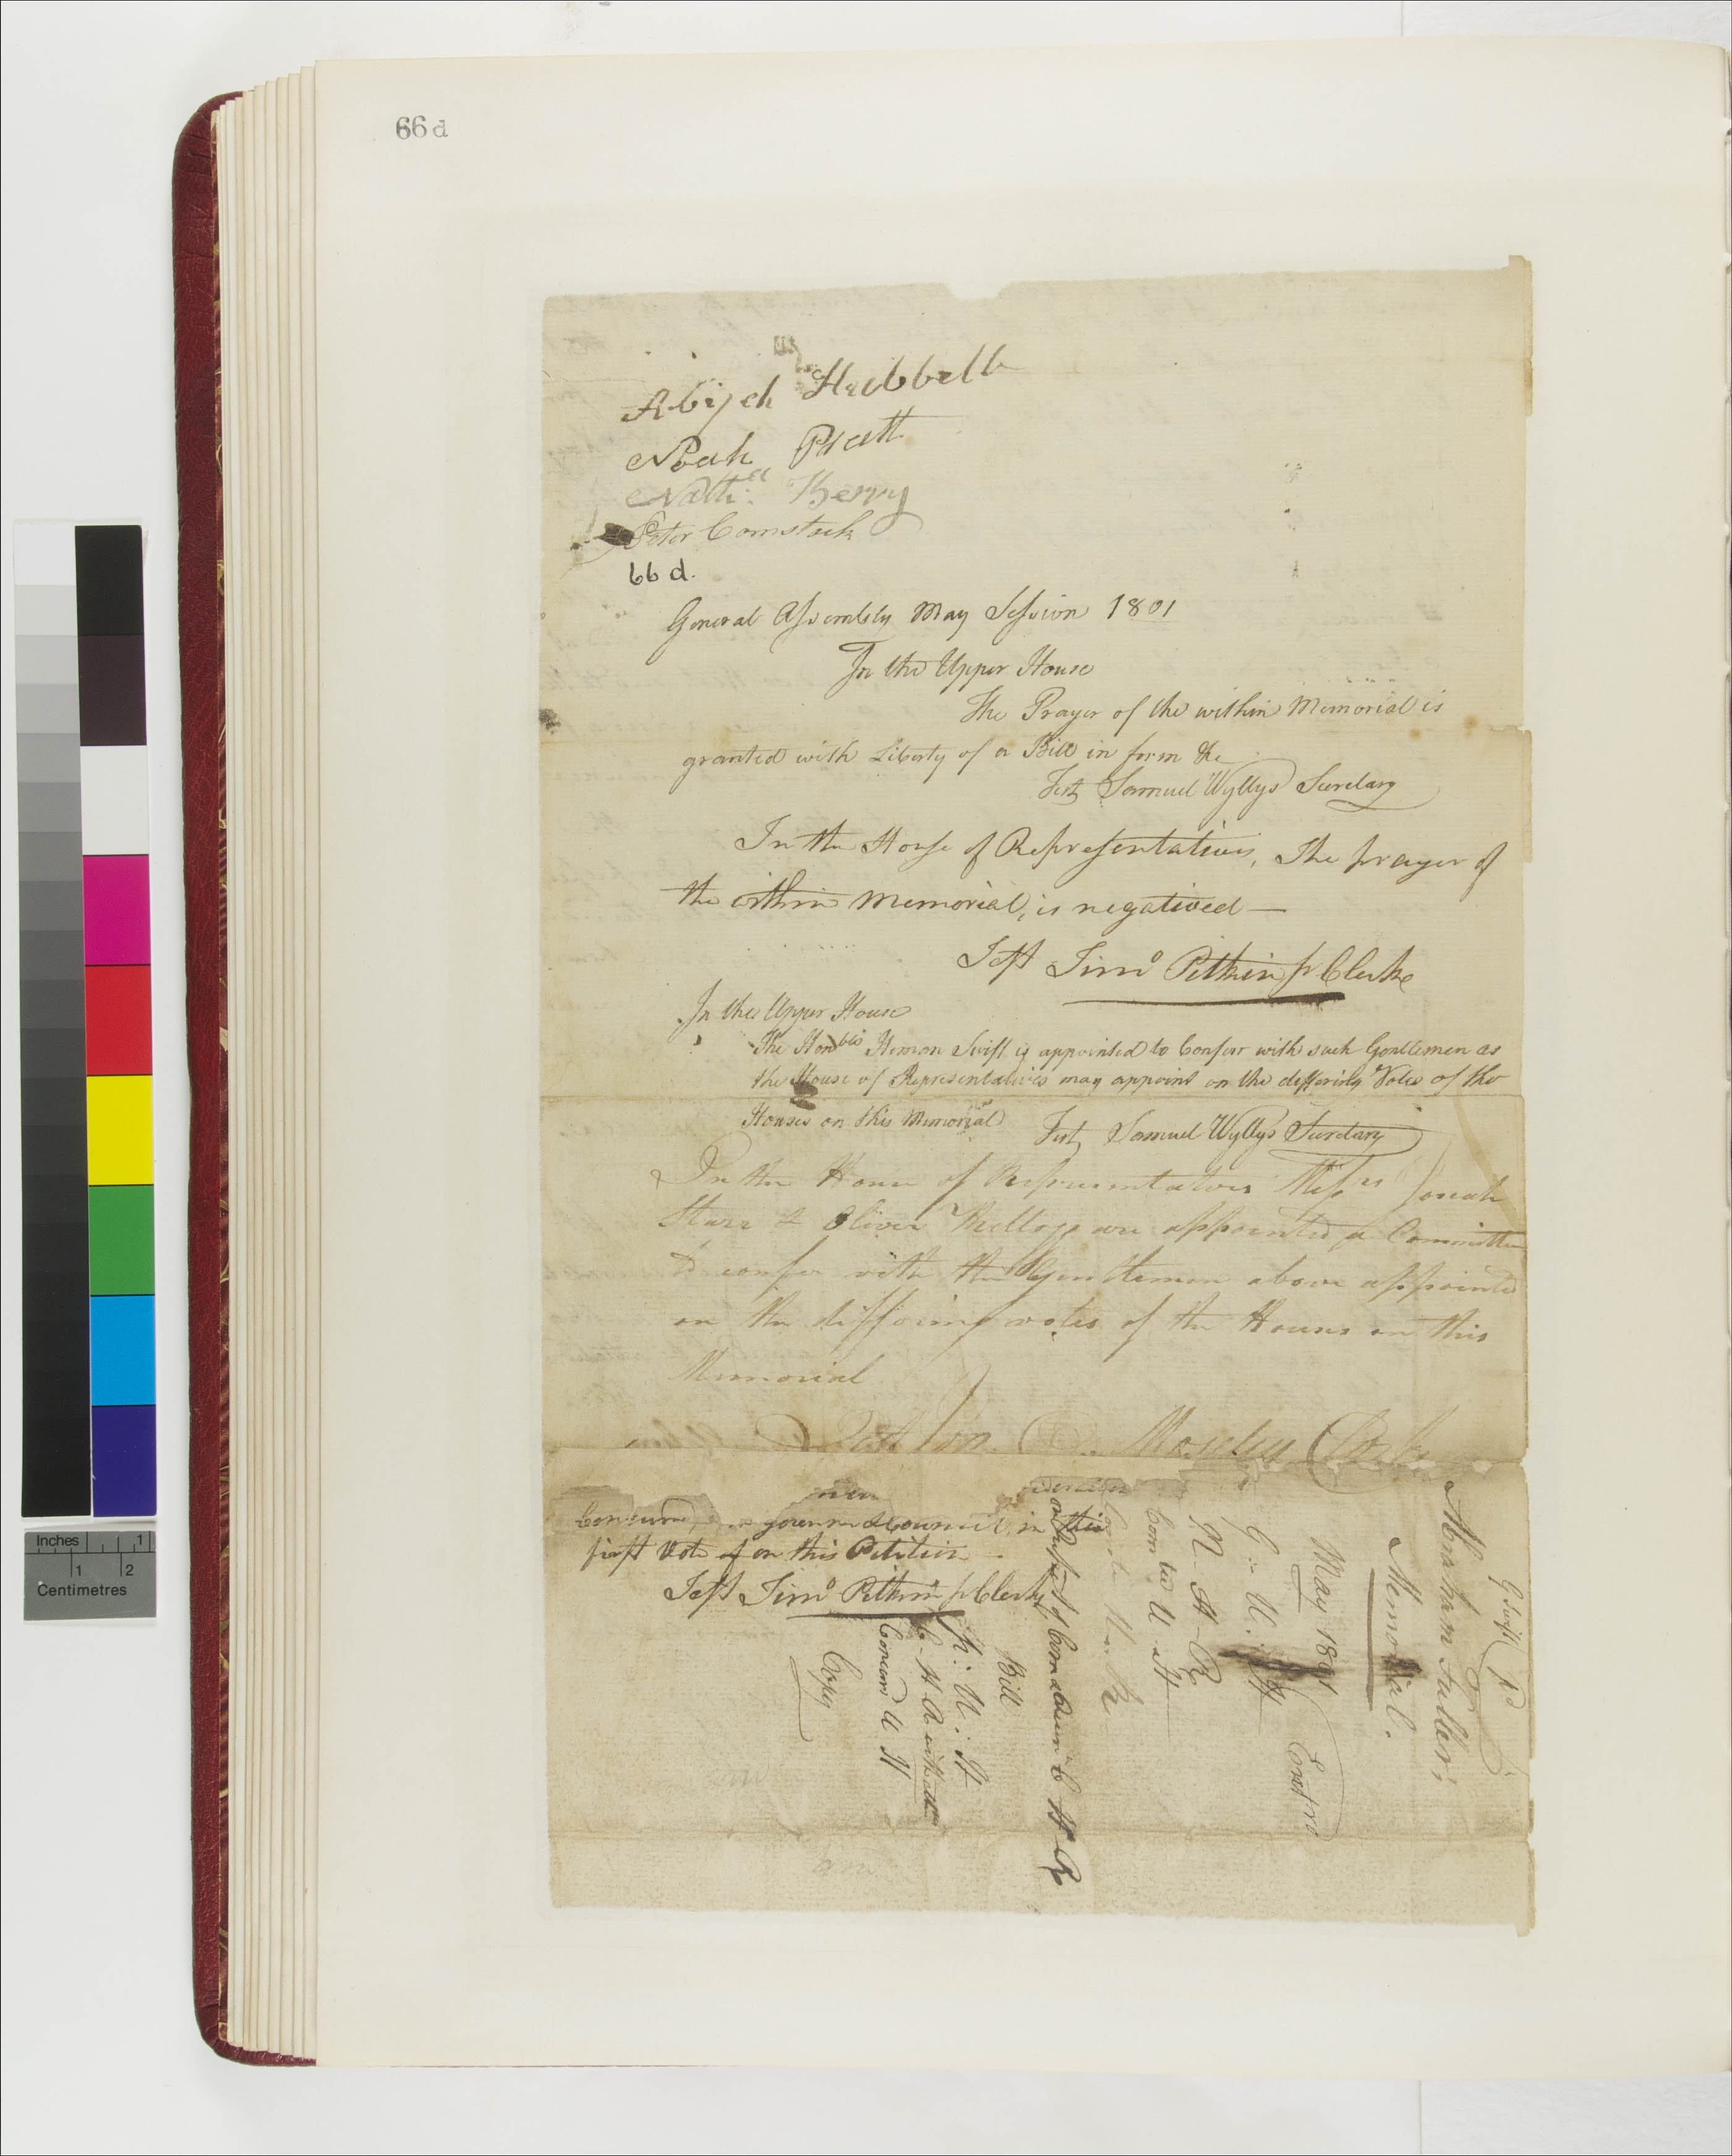 66 d
Abijeh Hubbell
Noah Pratt
Nathll Berry
Peter Comstock
66 d.
General Assembly May Session 1801
In the Upper House
The Prayer of the within Memorial is
granted with Liberty of a Bill in form &c
Test Samuel Wyllys Secretary
In the House of Representatives, The prayer of
the within memorial, is negatived —
Test Timo Pitkin jr Clerke
In the Upper House
The Honble Heman Swift is appointed to Confer with such Gentlemen as
the House of Representatives may appoint on the differing Votes of the
Houses on this Memorial
Test Samuel Wyllys Secretary
In the House of Representatives Messrs Josiah
Starr & Oliver Kellogg are appointed a Committee
to confer with the Gentlemen above appointed
on the differing votes of the Houses on this
Memorial
Test Jon. Moseley Clerk
in this
first Vote of on this Petition —
Test Timo Pitkin jr Clerke
Abraham Fuller's
Memorial.
May 1801
G : U. H
N - H - R
Com tee U - H
on Report of Com
H - R
Bill
U. H
C - H - R with
Concurd U H
Copy
Inches 1
1 2
Centimetres